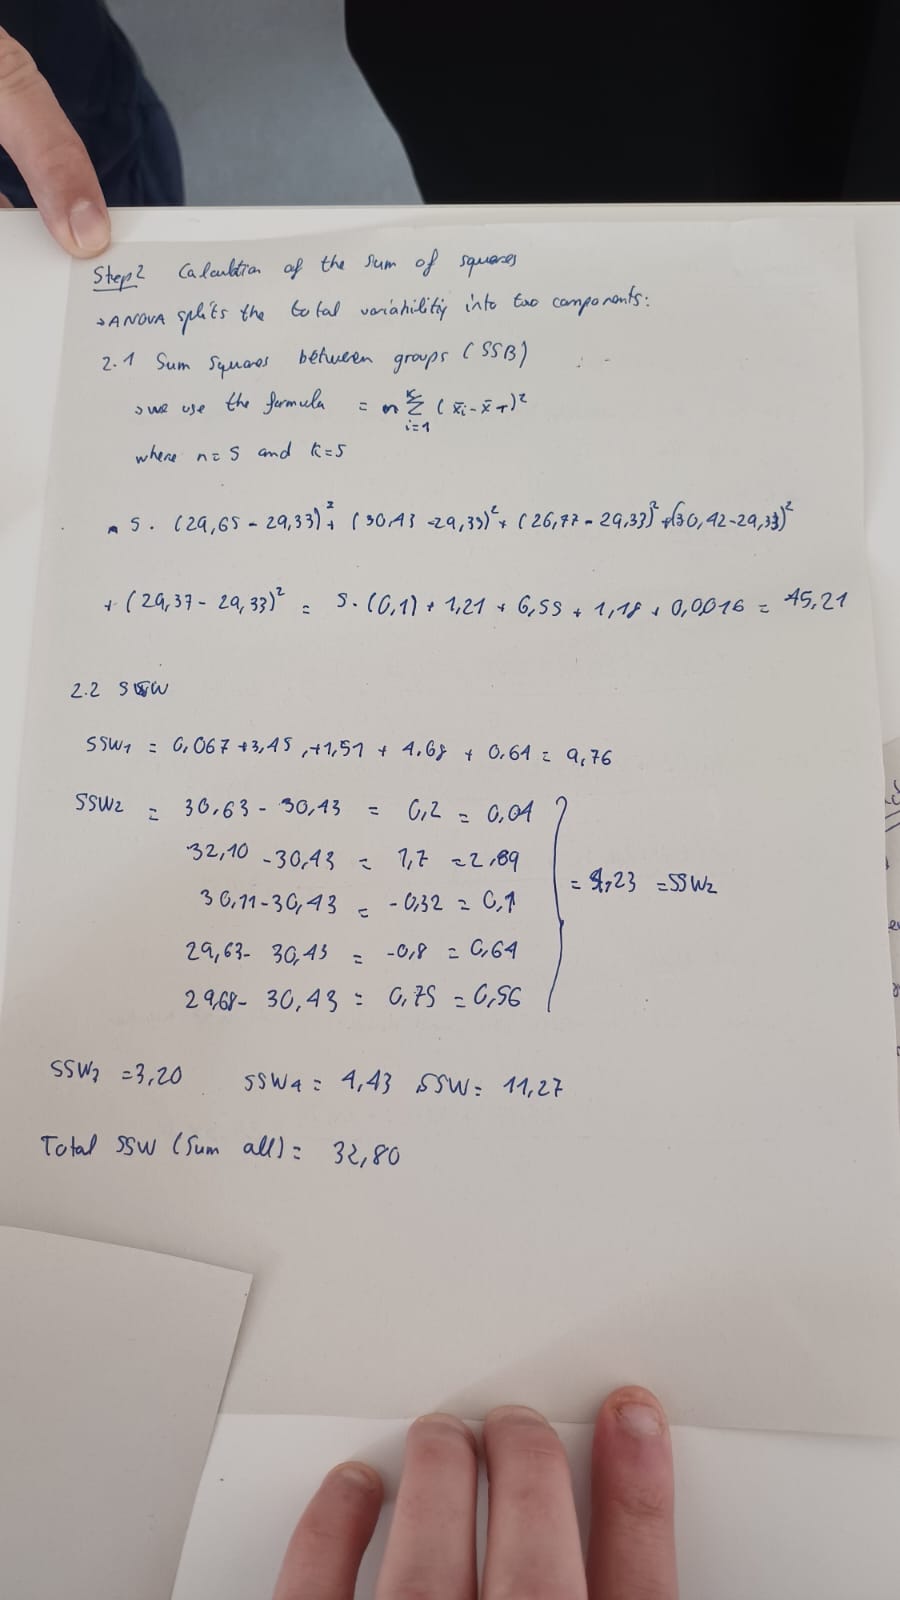 Step 2 Calculation of the sum of squares
→ ANOVA splits the total variability into two components:
2.1 Sum Squares between groups (SSB)
→ we use the formula = n K Σ i=1 (x̄i - x̄T)²
where n = 5 and K = 5
5 · (29,65 - 29,33)² + (30,43 - 29,33)² + (26,77 - 29,33)² + (30,42 - 29,33)²
+ (29,37 - 29,33)² = 5 · (0,1) + 1,21 + 6,55 + 1,18 + 0,0016 = 45,21
2.2 SSW
SSW1 = 0,067 + 3,45 + 1,51 + 4.68 + 0.64 = 9,76
SSW2 = 30,63 - 30,43 = 0,2 = 0,04
32,10 - 30,43 = 1,7 = 2,89
30,11 - 30,43 = - 0,32 = 0,1
= 4,23 = SSW2
29,63 - 30,43 = -0,8 = 0,64
29,68 - 30,43 = 0,75 = 0,56
SSW3 = 3,20 SSW4 = 4,43 SSW = 11,27
Total SSW (Sum all) = 32,80